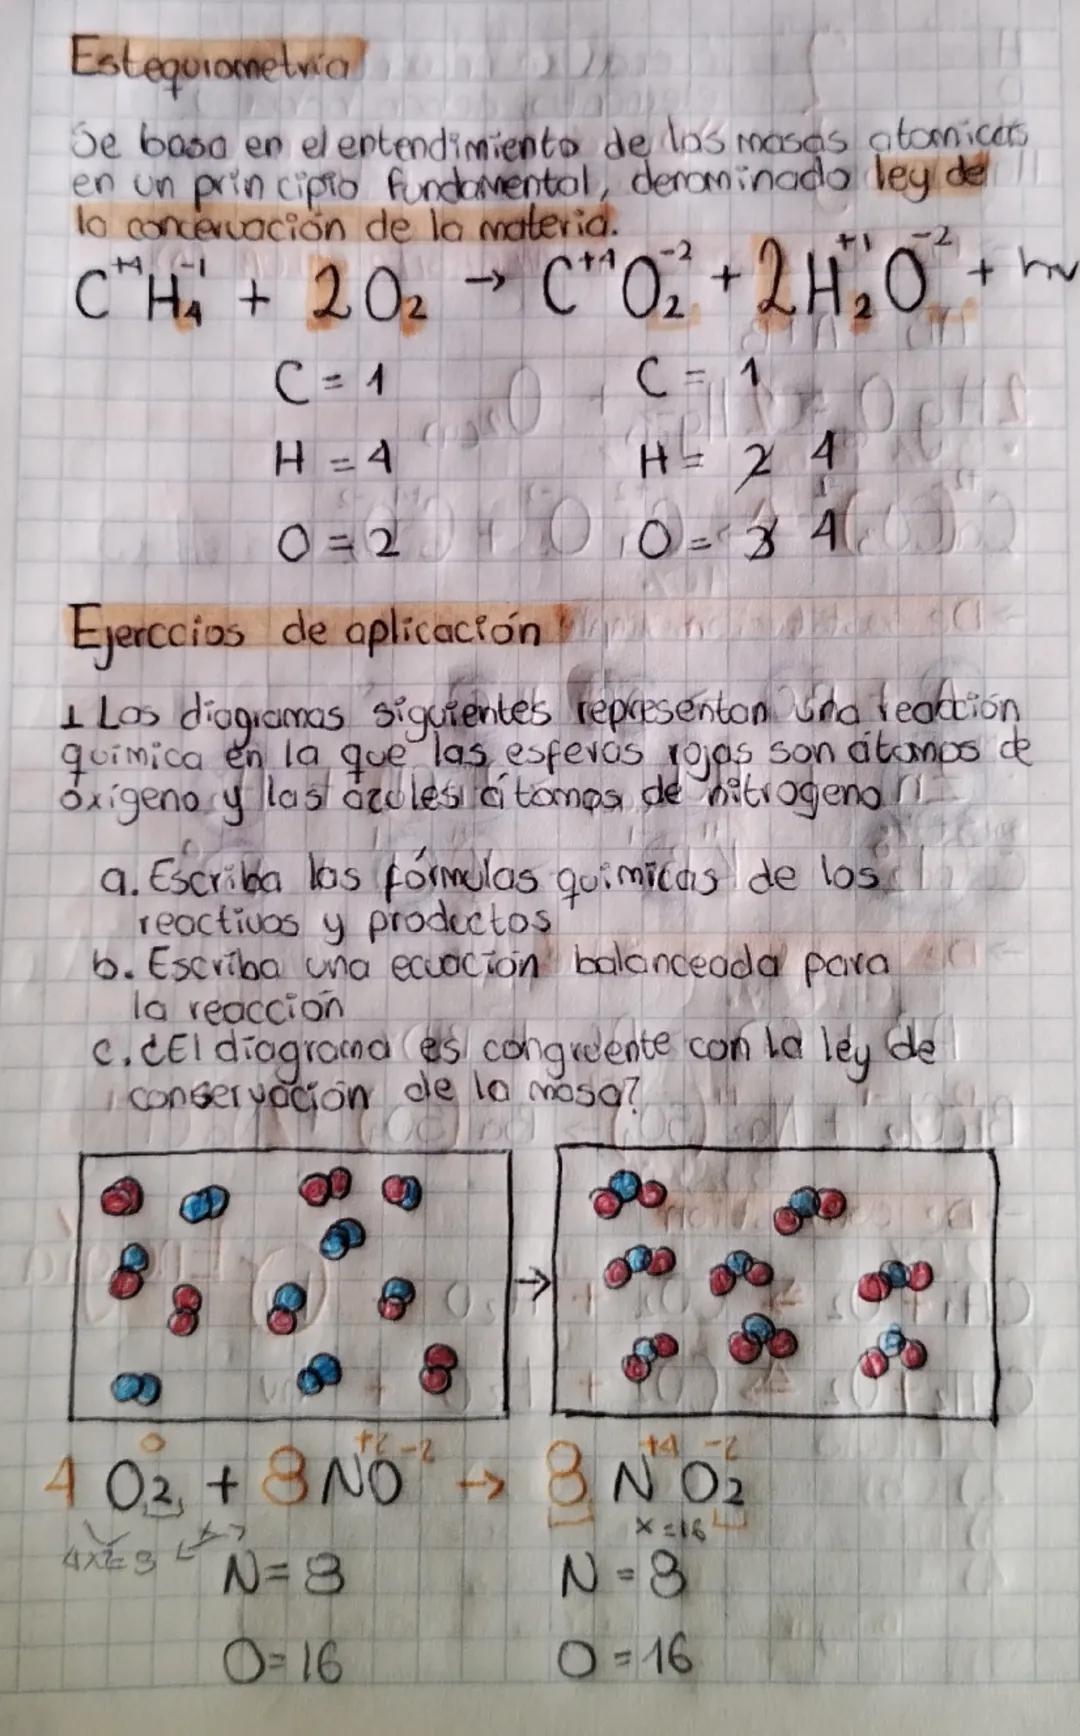 Estequiometría
Se basa en el entendimiento de las masas atomicas
en un principio fundamental, denominado ley de
la concervación de la materia.
C⁺⁴H₄⁻¹ + 2O₂ → C⁺⁴O₂⁻² + 2H₂⁺¹O⁻² + hv
C = 1 C = 1
H = 4 H = 2 4
O = 2 O = 3 4
Ejerccios de aplicación
1 Los diagramas siguientes representan una reacción
química en la que las esferas rojas son átomos de
oxígeno y las azules átomos de nitrogeno
a. Escriba las fórmulas quimicas de los
reactivos y productos
b. Escriba una ecuación balanceada para
la reacción
c. ¿El diagrama es congruente con la ley de
conservación de la masa?
→
4 O₂⁰ + 8 N⁺²O⁻² → 8 N⁺⁴O₂⁻²
4x2=8 x=16
N = 8 N = 8
O = 16 O = 16